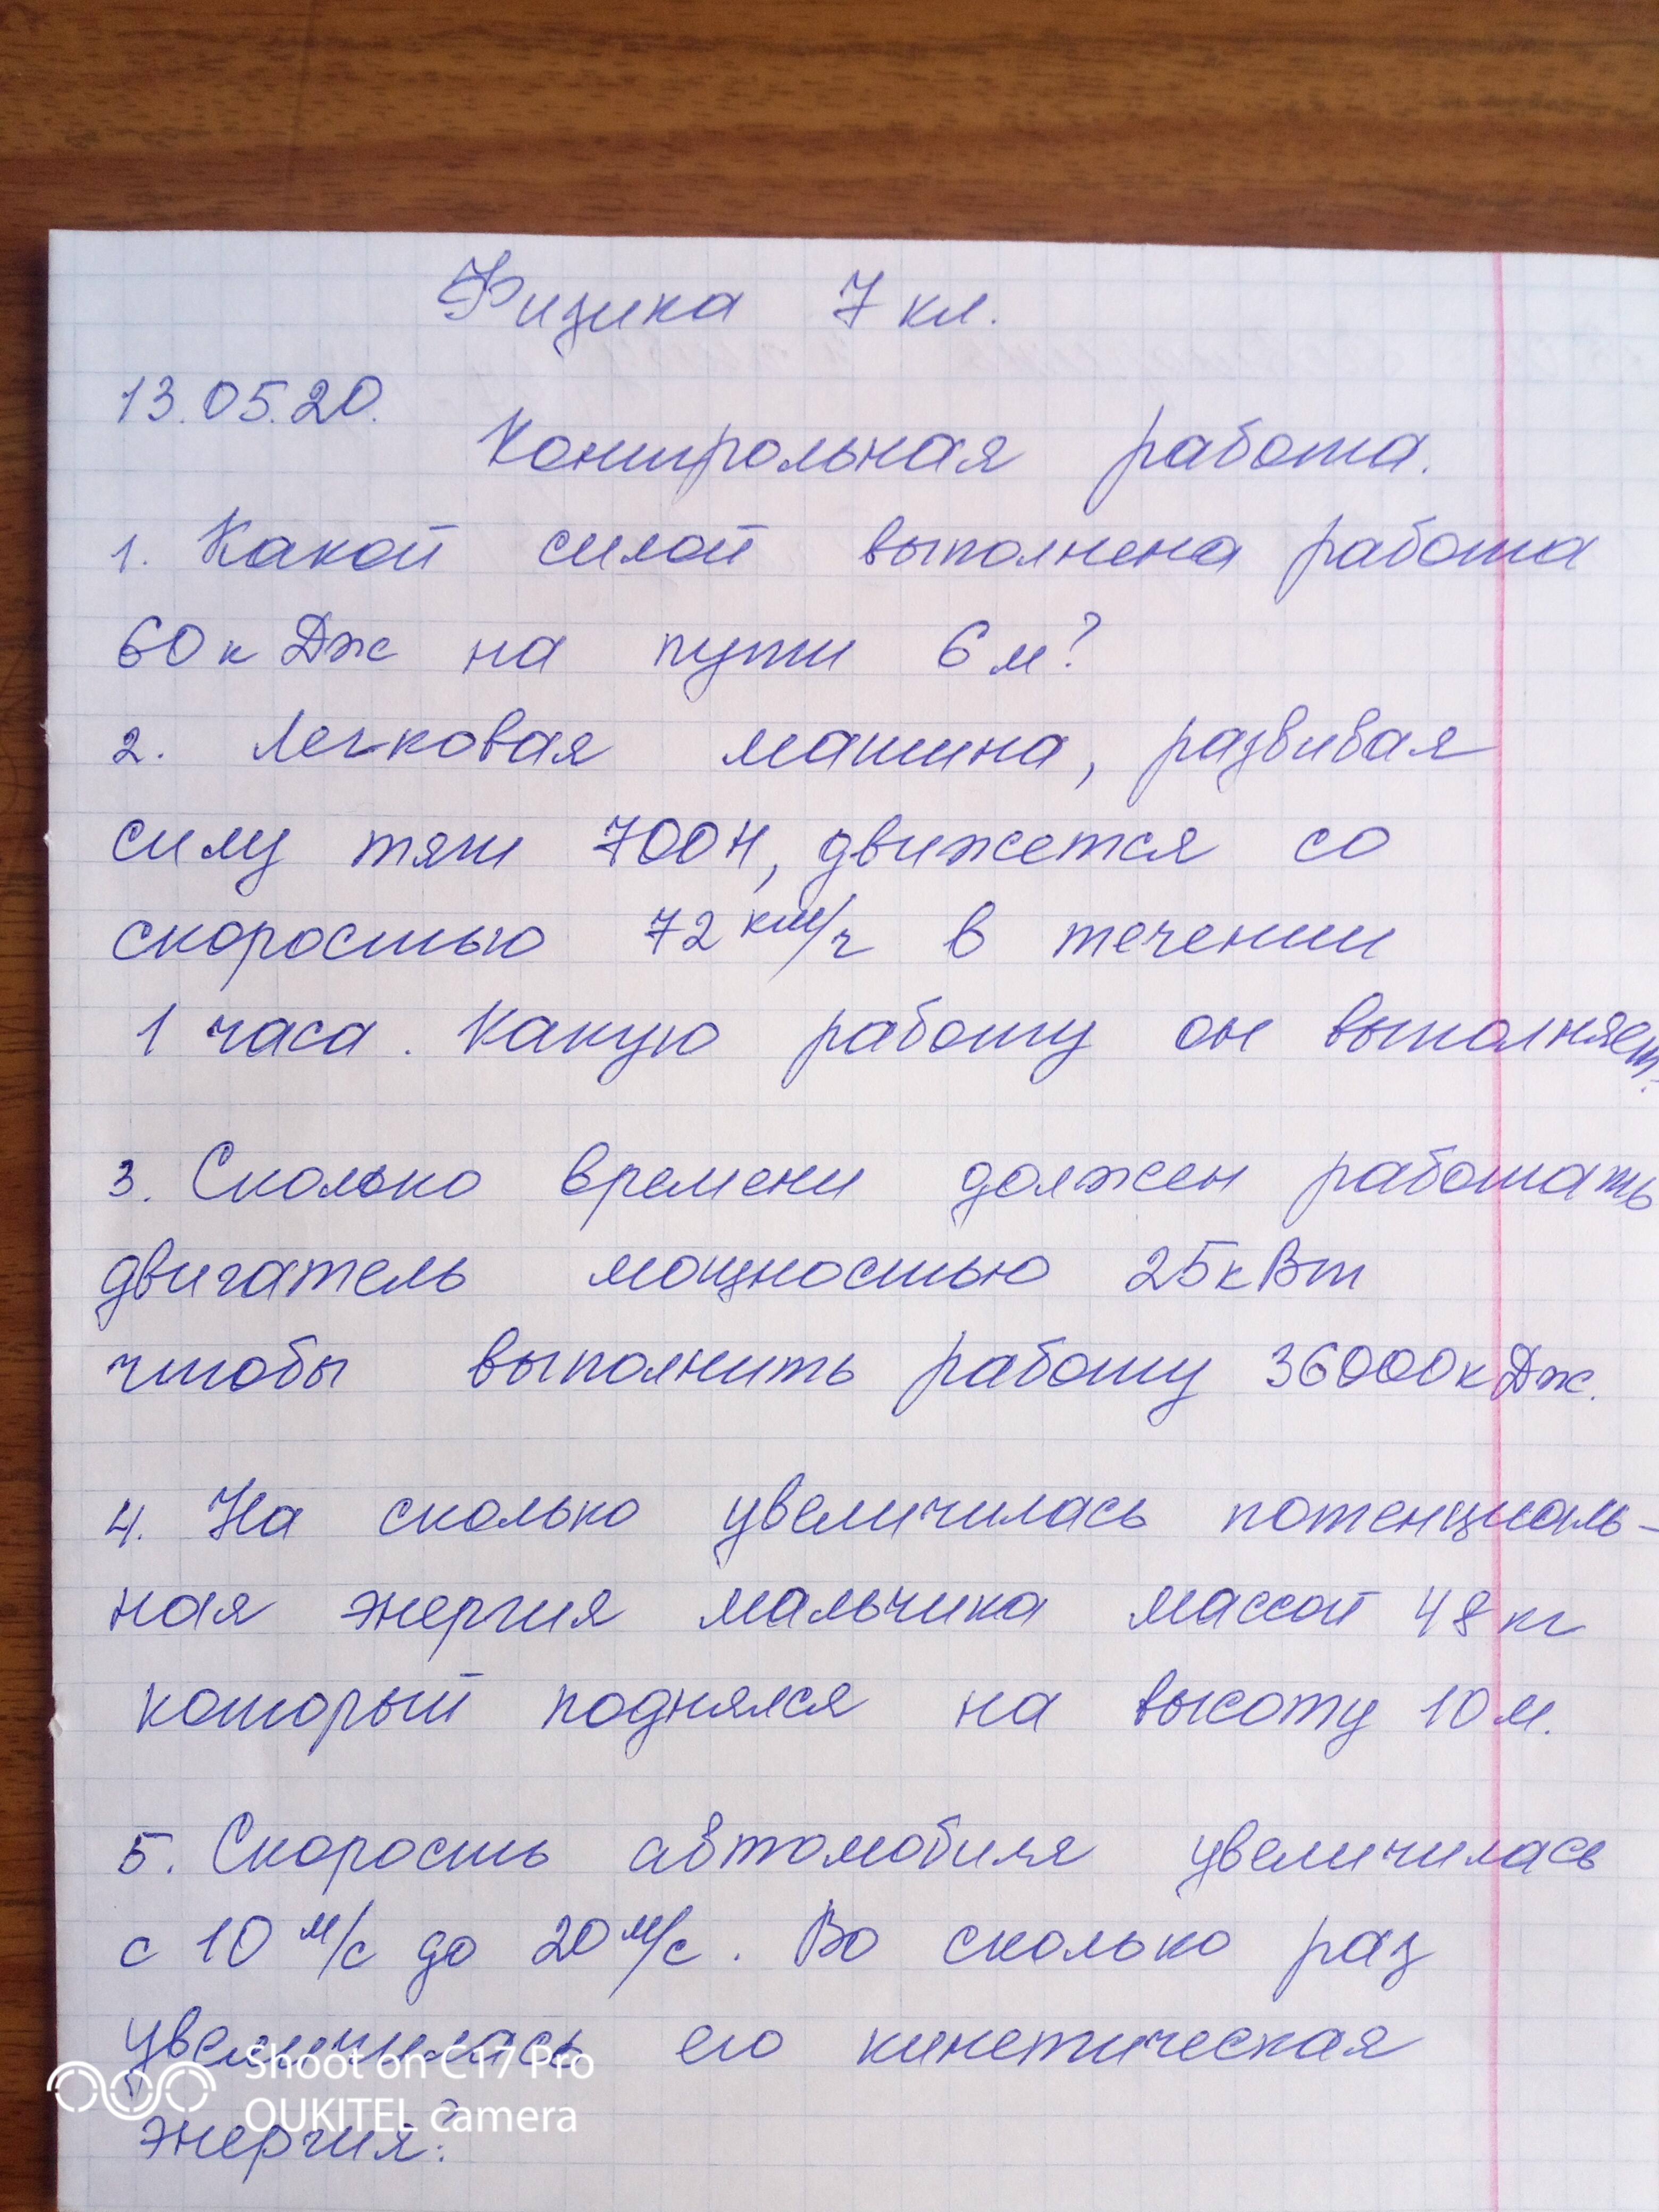 Физика 7 кл.
13.05.20.
Контрольная работа.
1. Какой силой выполнена работа
60 кДж на пути 6 м?
2. Легковая машина, развивая
силу тяги 700Н, движется со
скоростью 72 км/ч в течении
1 часа. Какую работу он выполняет?
3. Сколько времени должен работать
двигатель мощностью 25кВт
чтобы выполнить работу 36000кДж.
4. На сколько увеличилась потенциаль-
ная энергия мальчика массой 48кг
который поднялся на высоту 10м.
5. Скорость автомобиля увеличилась
с 10 м/с до 20 м/с. Во сколько раз
увеличилась его кинетическая
энергия?
Shoot on C17 Pro
OUKITEL camera